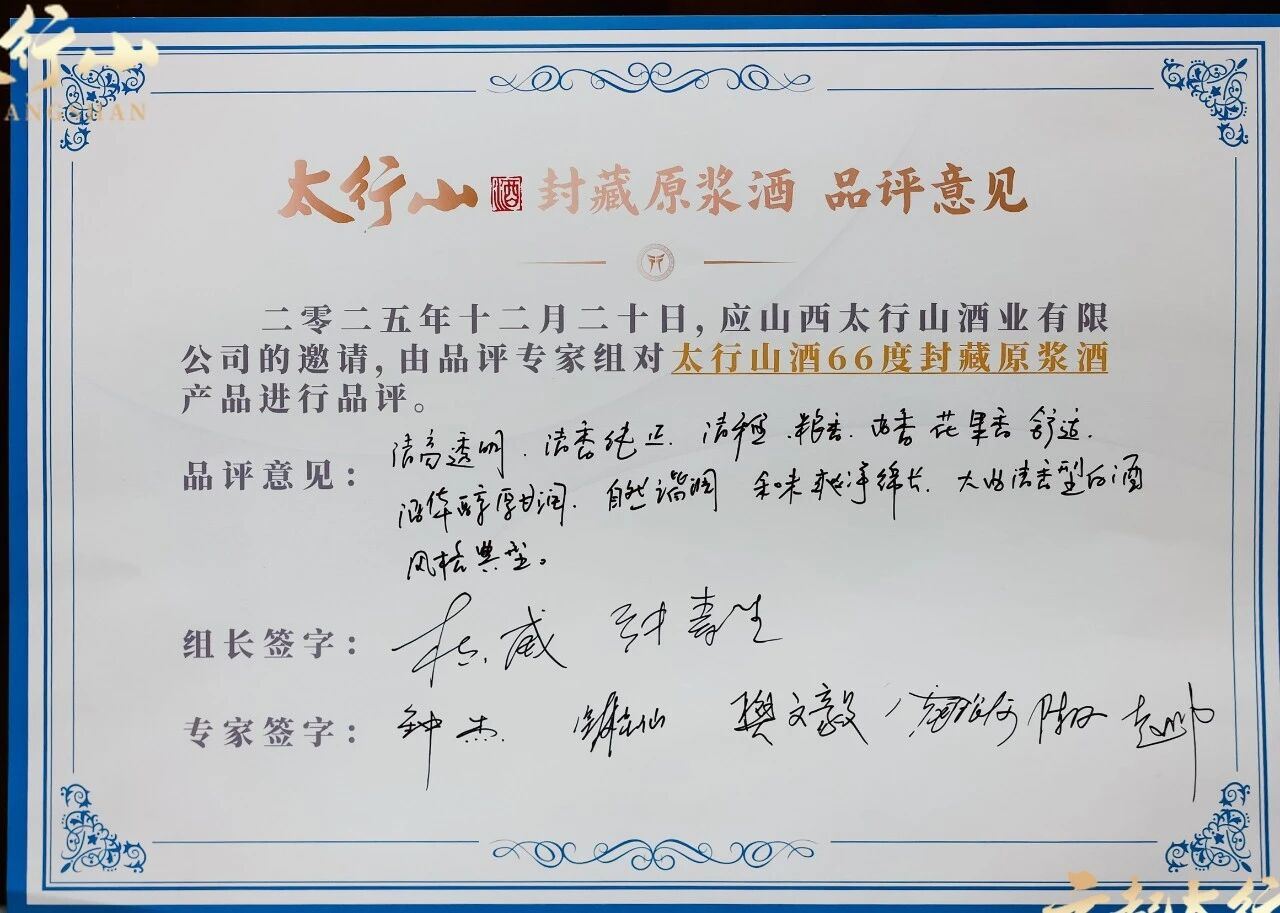 行山
ANGSHAN
太行山 酒 封藏原浆酒 品评意见
二零二五年十二月二十日，应山西太行山酒业有限
公司的邀请，由品评专家组对太行山酒66度封藏原浆酒
产品进行品评。
品评意见： 清亮透明、清香纯正、清雅 粮香、曲香 花果香 舒适、
醇厚甘润、自然谐调 余味爽净绵长、大曲清香型白酒
风格典型。
组长签字： 杜威
专家签字： 钟杰 樊文毅